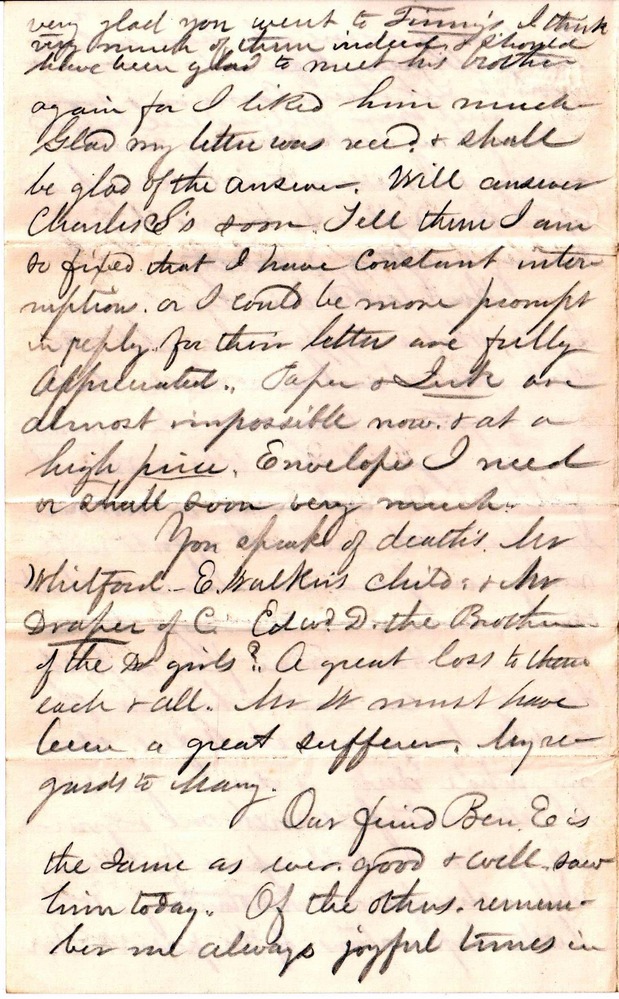 very glad you went to Finnis I think
very much of them indeed, & should
have been glad to meet his brother
again for I liked him much
Glad my letter was recd. & shall
be glad of the answer. Will answer
Charlie S's soon. Tell them I am
so fixed that I have constant inter
ruptions. or I could be more prompt
in reply. for their letters are fully
appreciated. Paper & Ink are
almost impossible now. & at a
high price. Envelopes I need
or shall soon very much.
You speak of deaths. Mr
Whitford - E. Walkins child: & Mr
Draper of C. Edwd. D. the Brother
of the Dr girls? A great loss to them
each & all. Mr W must have
been a great sufferer. My re
gards to Mary.
Our friend Ben. E is
the same as ever. good & well. saw
him today. Of the others. remem-
ber me always joyful times in